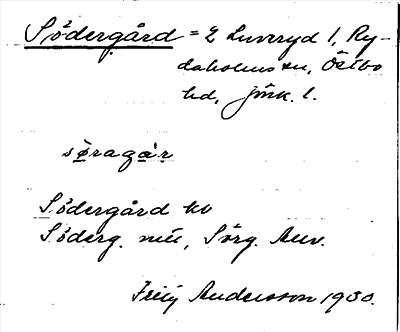 Södergård = 2 Luveryd 1, Ry-
daholms sn, Östbo
hd, Jönk. l.
söragár
Södergård kv
Söderg. nu, Sörg.
Fritz Andersson 1930.